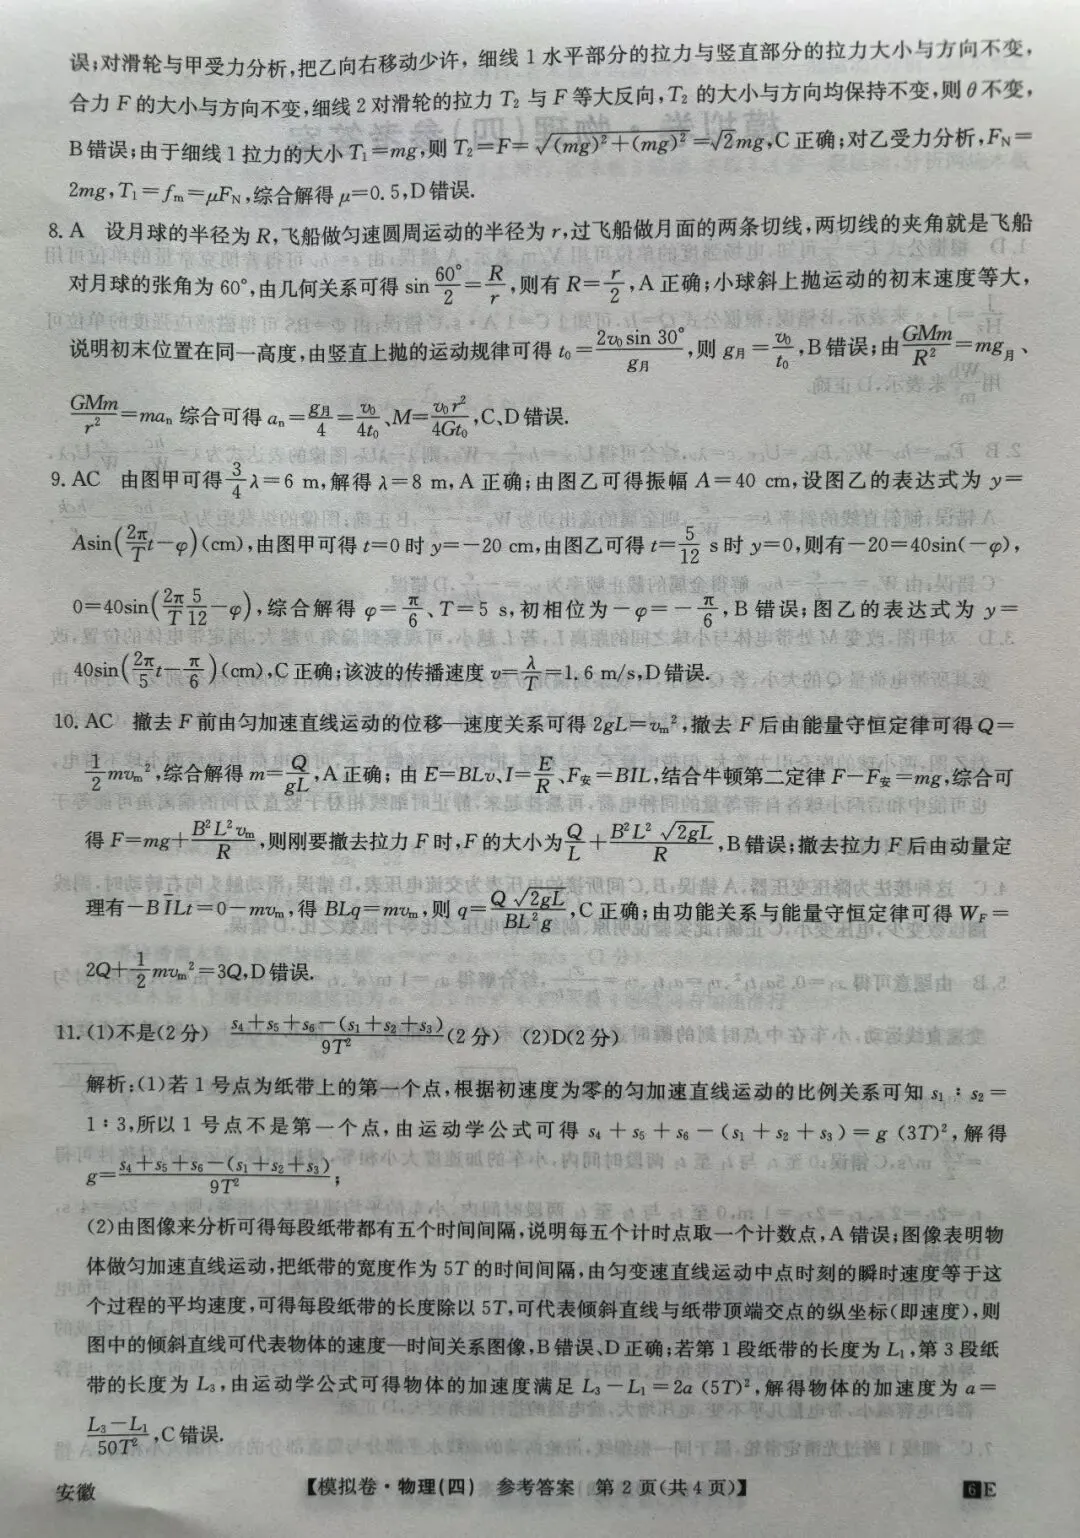 误;对滑轮与甲受力分析,把乙向右移动少许,细线1水平部分的拉力与竖直部分的拉力大小与方向不变,
合力F的大小与方向不变,细线2对滑轮的拉力T₂与F等大反向,T₂的大小与方向均保持不变,则θ不变,
B错误;由于细线1拉力的大小T₁=mg,则T₂=F=√((mg)²+(mg)²)=√2mg,C正确;对乙受力分析,F_N=
2mg,T₁=f_m=μF_N,综合解得μ=0.5,D错误.
8. A 设月球的半径为R,飞船做匀速圆周运动的半径为r,过飞船做月面的两条切线,两切线的夹角就是飞船
对月球的张角为60°,由几何关系可得sin 60°/2=R/r,则有R=r/2,A正确;小球斜上抛运动的初末速度等大,
说明初末位置在同一高度,由竖直上抛的运动规律可得t₀=2v₀sin 30°/g月,则g月=v₀/t₀,B错误;由GMm/R²=mg月、
GMm/r²=maₙ综合可得aₙ=g月/4=v₀/4t₀、M=v₀r²/4Gt₀,C、D错误.
9. AC 由图甲可得3/4λ=6 m,解得λ=8 m,A正确;由图乙可得振幅A=40 cm,设图乙的表达式为y=
Asin(2π/T t-φ)(cm),由图甲可得t=0时y=-20 cm,由图乙可得t=5/12 s时y=0,则有-20=40sin(-φ),
0=40sin(2π/T 5/12-φ),综合解得φ=π/6、T=5 s,初相位为-φ=-π/6,B错误;图乙的表达式为y=
40sin(2π/5 t-π/6)(cm),C正确;该波的传播速度v=λ/T=1.6 m/s,D错误.
10. AC 撤去F前由匀加速直线运动的位移—速度关系可得2gL=v_m²,撤去F后由能量守恒定律可得Q=
1/2 mv_m²,综合解得m=Q/gL,A正确;由E=BLv、I=E/R、F安=BIL,结合牛顿第二定律F-F安=mg,综合可
得F=mg+B²L²v_m/R,则刚要撤去拉力F时,F的大小为Q/L+B²L²√2gL/R,B错误;撤去拉力F后由动量定
理有-BĪLt=0-mv_m,得BLq=mv_m,则q=Q√2gL/BL²g,C正确;由功能关系与能量守恒定律可得W_F=
2Q+1/2 mv_m²=3Q,D错误.
11. (1)不是(2分) s₄+s₅+s₆-(s₁+s₂+s₃)/9T²(2分) (2)D(2分)
解析:(1)若1号点为纸带上的第一个点,根据初速度为零的匀加速直线运动的比例关系可知s₁∶s₂=
1∶3,所以1号点不是第一个点,由运动学公式可得s₄+s₅+s₆-(s₁+s₂+s₃)=g(3T)²,解得
g=s₄+s₅+s₆-(s₁+s₂+s₃)/9T²;
(2)由图像来分析可得每段纸带都有五个时间间隔,说明每五个计时点取一个计数点,A错误;图像表明物
体做匀加速直线运动,把纸带的宽度作为5T的时间间隔,由匀变速直线运动中点时刻的瞬时速度等于这
个过程的平均速度,可得每段纸带的长度除以5T,可代表倾斜直线与纸带顶端交点的纵坐标(即速度),则
图中的倾斜直线可代表物体的速度—时间关系图像,B错误、D正确;若第1段纸带的长度为L₁,第3段纸
带的长度为L₃,由运动学公式可得物体的加速度满足L₃-L₁=2a(5T)²,解得物体的加速度为a=
L₃-L₁/50T²,C错误.
安徽 【模拟卷·物理(四) 参考答案 第2页(共4页)】 6 E